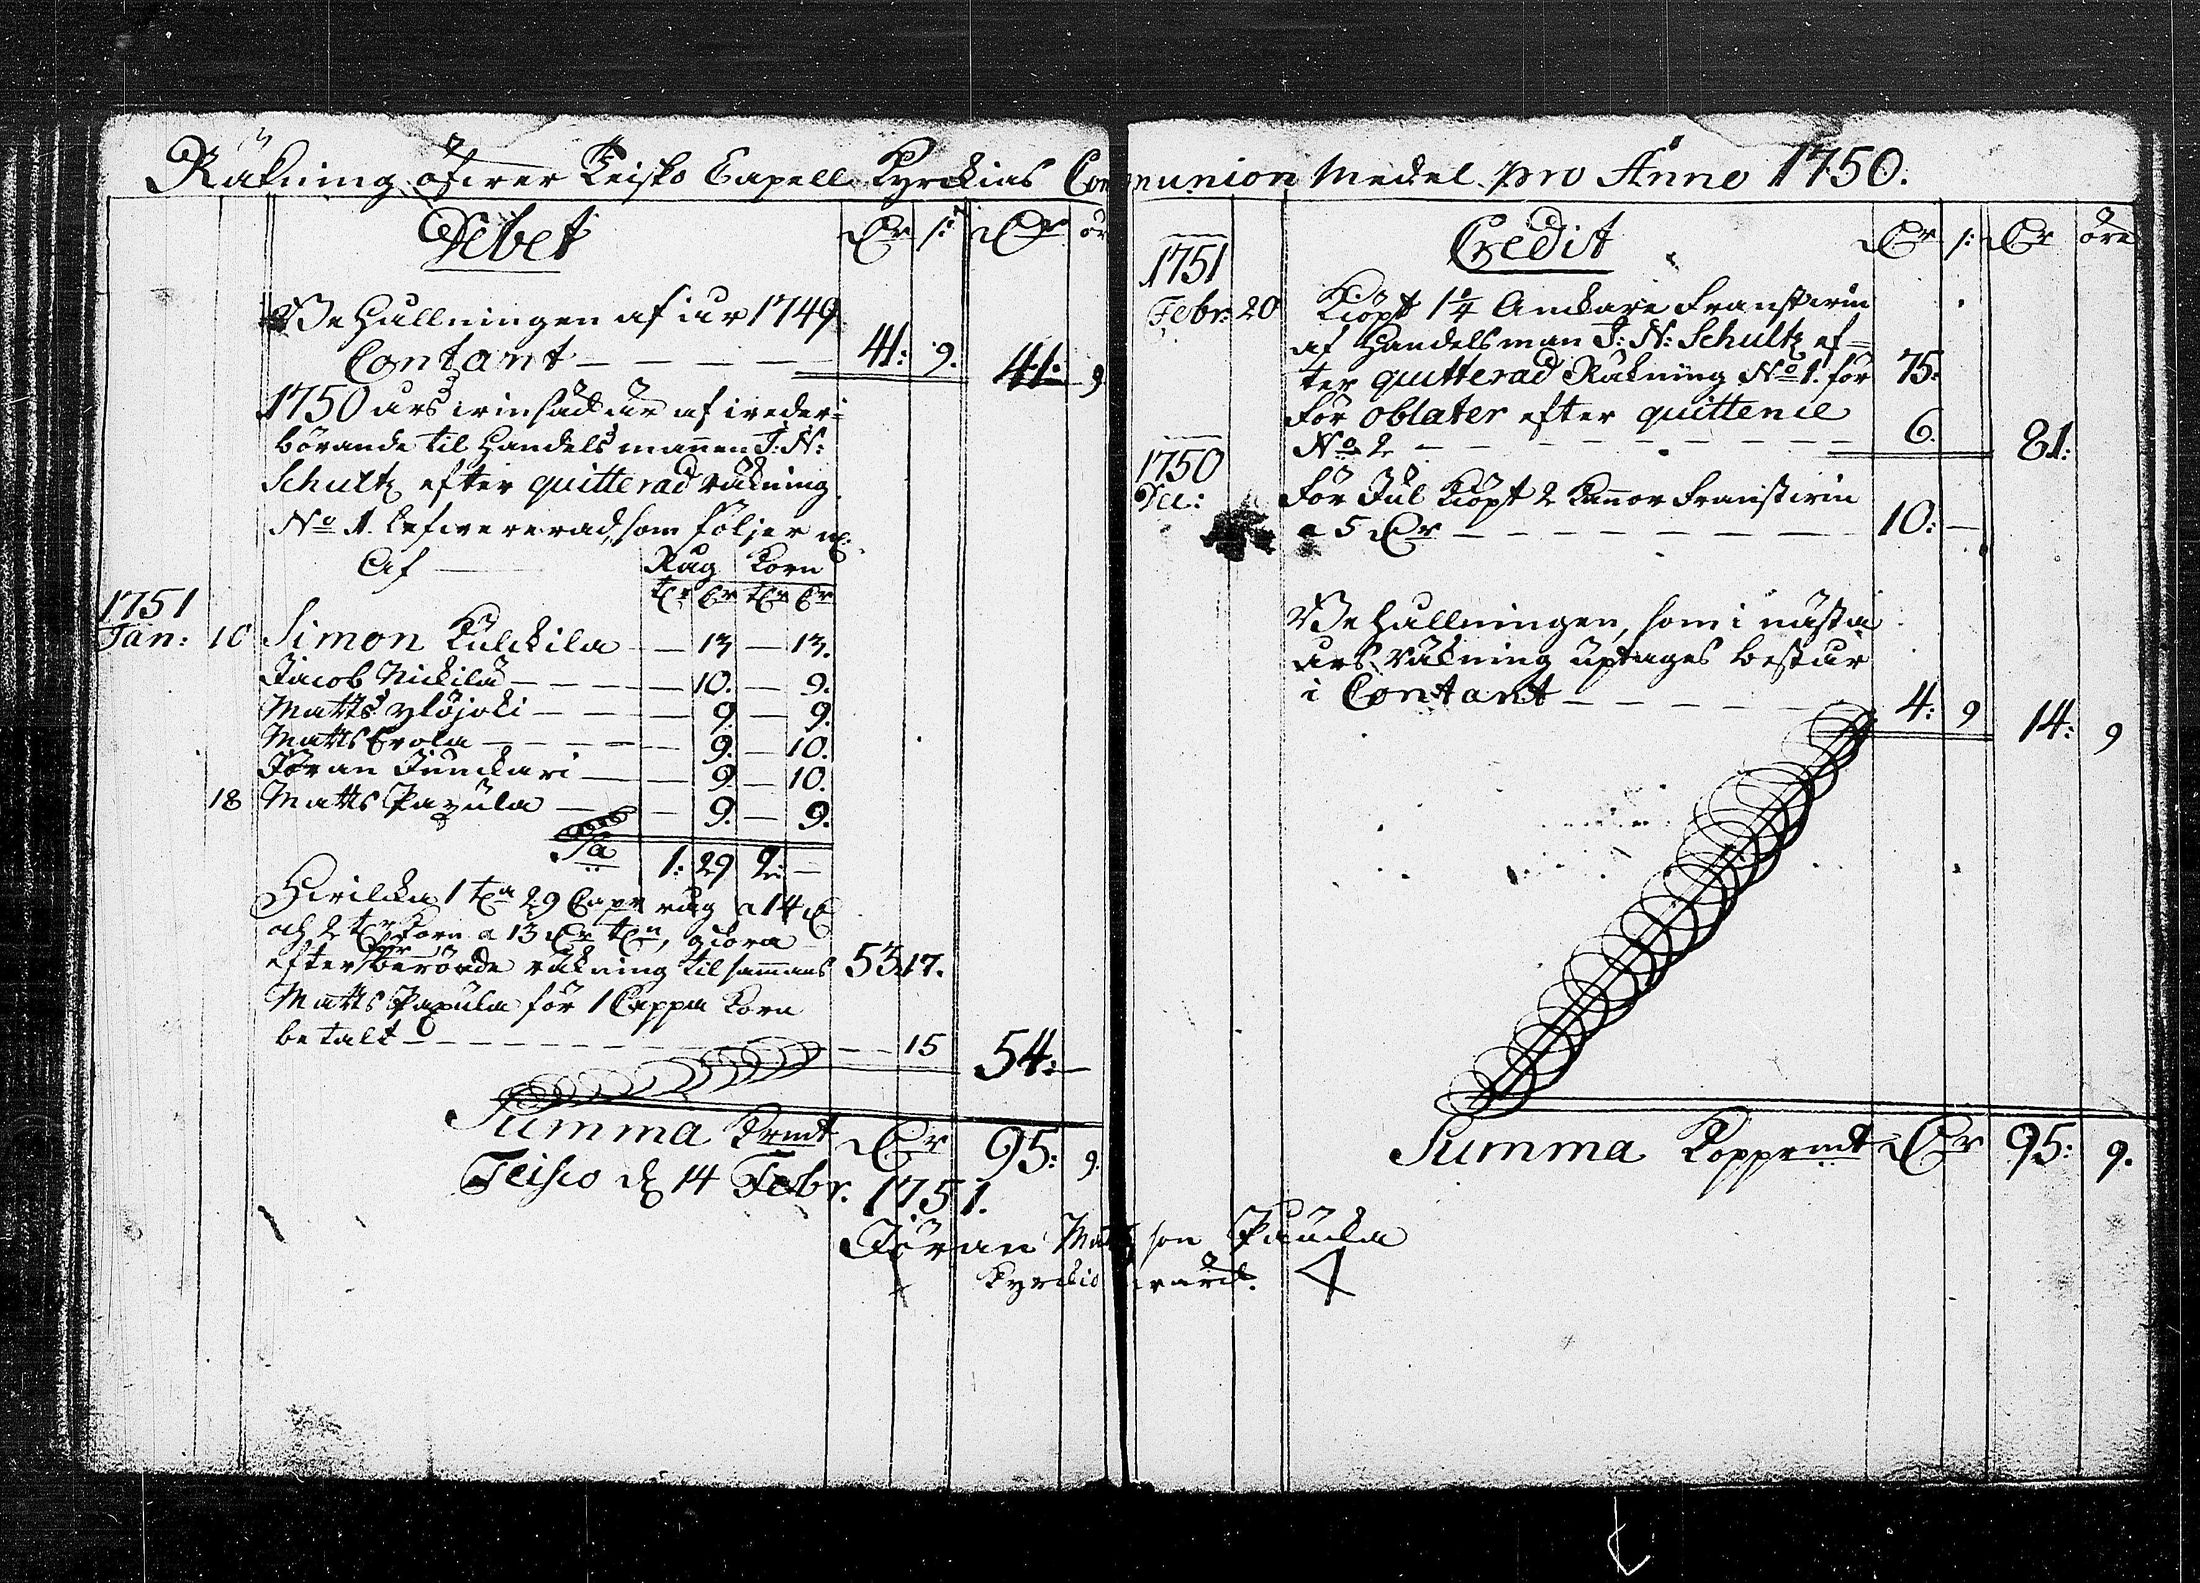 Räkning öfwer Teisko Capell Kyrckias Communion Medel pro Anno 1750.
Debet
Behållningen af åhr 1749
Contant — — — — 41: 9. 41: 9
1750 års winsäd är af weder-
börande til Handelsmannen J: N:
Schultz efter quitterad räkning
No 1. lefwererad, som följer
Af — Råg Korn
1751
Jan: 10 Simon Kulckila — — 13 — 13.
Jacob Nickilä — — — — 10. — 9.
Matts Ylöjoki — — — — 9. — 9.
Matts Erola — — — — 9. — 10.
Jöran Junckari — — — 9. — 10.
18 Matts Papula — — 9. — 9.
1: 29 2: —
Hwilcka 1 ta 29 Capr råg a 14
och 2 tr korn a 13 tn, giöra
efter berörde räkning tilsammans 53 17.
Matts Papula för 1 Cappa Korn
betalt — — — — — — 15 54: —
Summa Kmt 95: 9.
Teisco d 14 Febr. 1751.
Jöran Mattsson Paucka
Kyrckio wärd.
Credit öre
1751
Febr: 20 Kiöpt 1 1/4 Anckare Franstwin
af Handelsman J: N: Schultz ef-
ter quitterad Räkning No 1. för 75:
För oblater efter quittence
No 2 — — — — — — 6. 81:
1750
Dec: För Jul kiöpt 2 Kannor Franstwin
a 5 — — — — — — 10: —
Behållningen, som i nästa
års räkning uptages består
i Contant — — — — — 4: 9 14: 9
Summa Koppmt 95: 9.